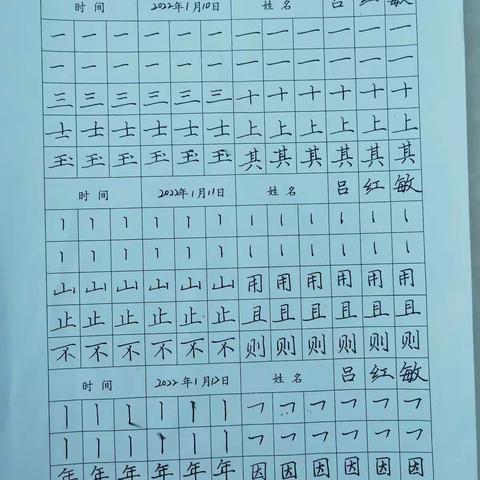 时间 2022年1月10日 姓名 吕红敏
一 一 一 一 一 一 一 一 一 一 一 一
一 一 一 一 一 一 一 一 一 一 一 一
三 三 三 三 三 三 十 十 十 十 十 十
士 士 士 士 士 士 上 上 上 上 上 上
玉 玉 玉 玉 玉 玉 其 其 其 其 其 其
时间 2022年1月11日 姓名 吕红敏
丨 丨 丨 丨 丨 丨 丨 丨 丨 丨 丨 丨
丨 丨 丨 丨 丨 丨 丨 丨 丨 丨 丨 丨
山 山 山 山 山 山 用 用 用 用 用 用
止 止 止 止 止 止 且 且 且 且 且 且
不 不 不 不 不 不 则 则 则 则 则 则
时间 2022年1月12日 姓名 吕红敏
丨 丨 丨 丨 丨 丨 ㇕ ㇕ ㇕ ㇕ ㇕ ㇕
丨 丨 丨 丨 丨 丨 ㇕ ㇕ ㇕ ㇕ ㇕ ㇕
年 年 年 年 年 年 因 因 因 因 因 因